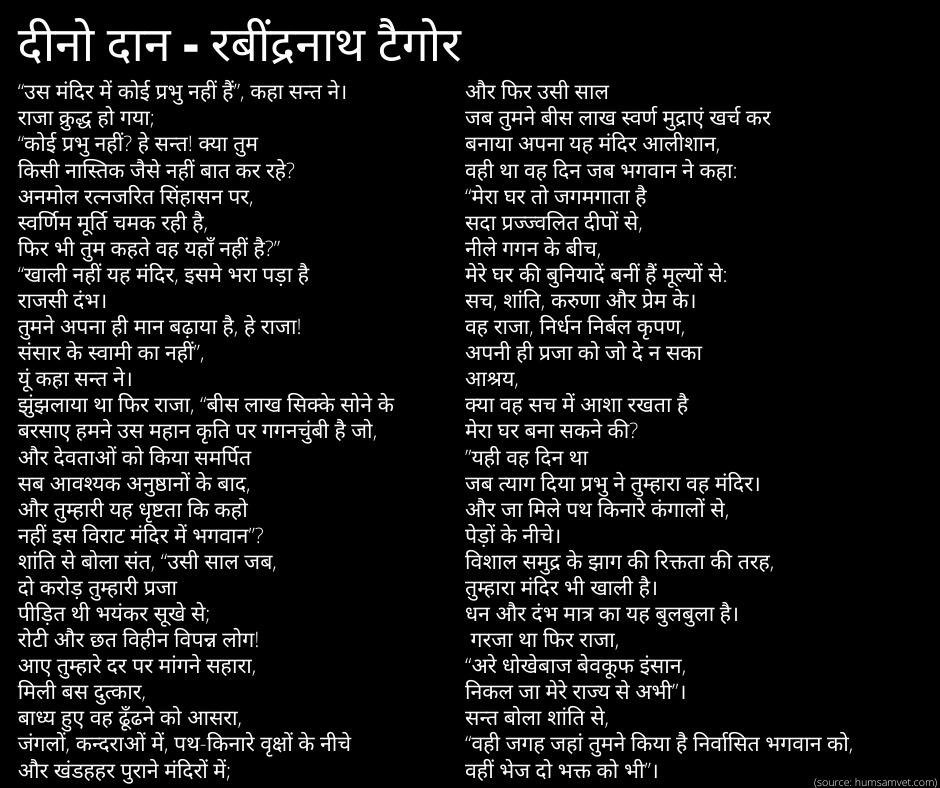 दीनो दान - रबींद्रनाथ टैगोर
“उस मंदिर में कोई प्रभु नहीं हैं”, कहा सन्त ने।
राजा क्रुद्ध हो गया;
“कोई प्रभु नहीं? हे सन्त! क्या तुम
किसी नास्तिक जैसे नहीं बात कर रहे?
अनमोल रत्नजरित सिंहासन पर,
स्वर्णिम मूर्ति चमक रही है,
फिर भी तुम कहते वह यहाँ नहीं है?”
“खाली नहीं यह मंदिर, इसमे भरा पड़ा है
राजसी दंभ।
तुमने अपना ही मान बढ़ाया है, हे राजा!
संसार के स्वामी का नहीं”,
यूं कहा सन्त ने।
झुंझलाया था फिर राजा, “बीस लाख सिक्के सोने के
बरसाए हमने उस महान कृति पर गगनचुंबी है जो,
और देवताओं को किया समर्पित
सब आवश्यक अनुष्ठानों के बाद,
और तुम्हारी यह धृष्टता कि कहो
नहीं इस विराट मंदिर में भगवान”?
शांति से बोला संत, “उसी साल जब,
दो करोड़ तुम्हारी प्रजा
पीड़ित थी भयंकर सूखे से;
रोटी और छत विहीन विपन्न लोग!
आए तुम्हारे दर पर मांगने सहारा,
मिली बस दुत्कार,
बाध्य हुए वह ढूँढने को आसरा,
जंगलों, कन्दराओं में, पथ-किनारे वृक्षों के नीचे
और खंडहहर पुराने मंदिरों में;
और फिर उसी साल
जब तुमने बीस लाख स्वर्ण मुद्राएं खर्च कर
बनाया अपना यह मंदिर आलीशान,
वही था वह दिन जब भगवान ने कहा:
“मेरा घर तो जगमगाता है
सदा प्रज्ज्वलित दीपों से,
नीले गगन के बीच,
मेरे घर की बुनियादें बनीं हैं मूल्यों से:
सच, शांति, करुणा और प्रेम के।
वह राजा, निर्धन निर्बल कृपण,
अपनी ही प्रजा को जो दे न सका
आश्रय,
क्या वह सच में आशा रखता है
मेरा घर बना सकने की?
”यही वह दिन था
जब त्याग दिया प्रभु ने तुम्हारा वह मंदिर।
और जा मिले पथ किनारे कंगालों से,
पेड़ों के नीचे।
विशाल समुद्र के झाग की रिक्तता की तरह,
तुम्हारा मंदिर भी खाली है।
धन और दंभ मात्र का यह बुलबुला है।
गरजा था फिर राजा,
“अरे धोखेबाज बेवकूफ इंसान,
निकल जा मेरे राज्य से अभी”।
सन्त बोला शांति से,
“वही जगह जहां तुमने किया है निर्वासित भगवान को,
वहीं भेज दो भक्त को भी”।
(source: humsamvet.com)